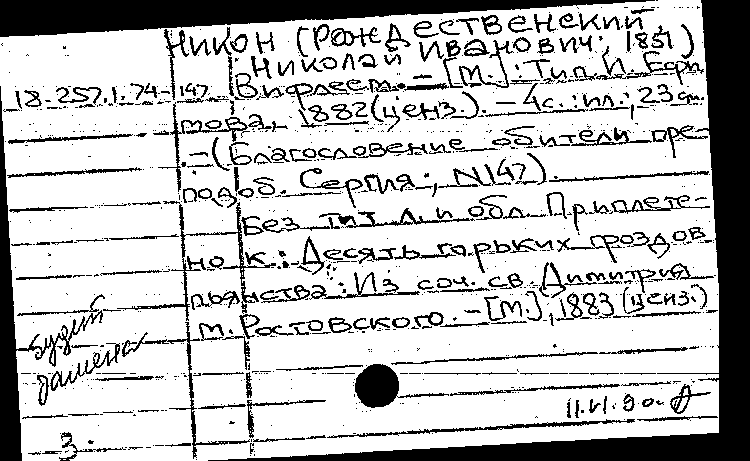 НИКОН (РОЖДЕСТВЕНСКИЙ,
НИКОЛАЙ ИВАНОВИЧ; 1851)
18.257.1.74-147 Вифлеем. – [М.]: Тип. И. Ефи
мова, 1882 (ценз.). – 4с.: ил.; 23 см
. – (Благословение обители пре-
подоб. Сергия; N147).
Без тит л. и обл. Приплете-
но к: Десять горьких гроздов
пьянства: Из соч. св. Димитрия
м. Ростовского. – [М.], 1883 (ценз.)
будет
замена
11.VI.90.
3.